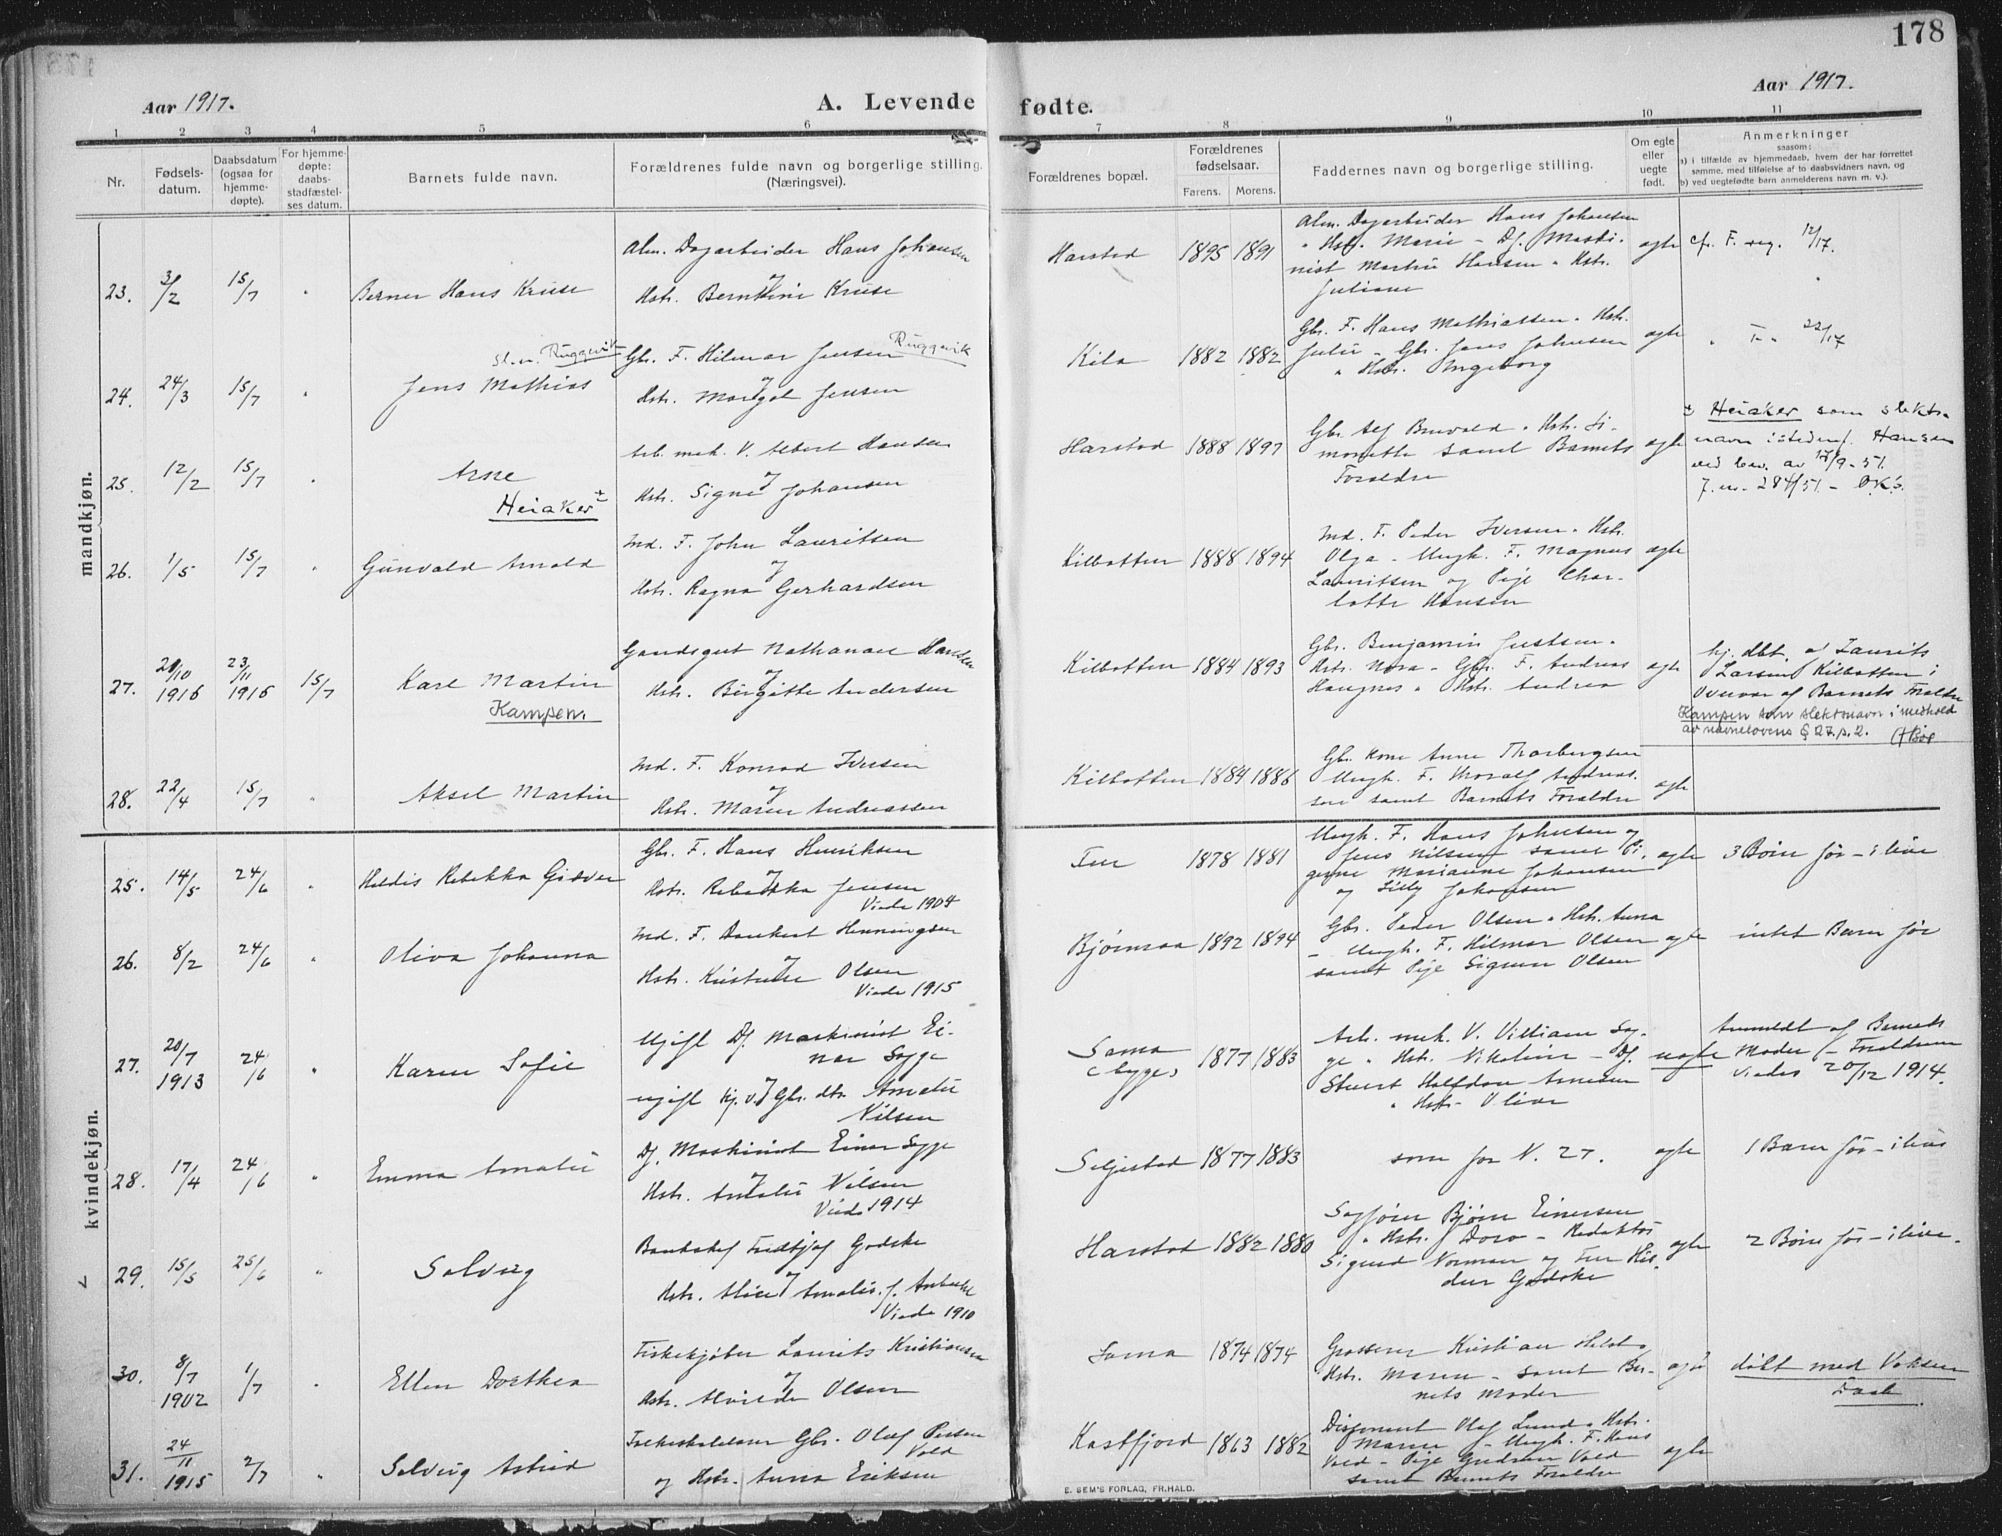 178
Aar 1917.
A. Levende fødte.
Aar 1917.
1 2 3 4 5 6 7 8 9 10 11
Nr.
Fødsels-
datum.
Daabsdatum
(ogsaa for
hjemme-
døpte).
For hjemme-
døpte:
daabs-
stadfæstel-
ses datum.
Barnets fulde navn.
Forældrenes fulde navn og borgerlige stilling.
(Næringsvei).
Forældrenes bopæl.
Forældrenes
fødselsaar.
Farens. Morens.
Faddernes navn og borgerlige stilling.
Om egte
eller
uegte
født.
Anmerkninger
saasom:
a) i tilfælde av hjemmedaab, hvem der har forrettet
samme, med tilføielse af to daabsvidners navn, og
b) ved uegtefødte barn anmelderens navn m. v.).
mandkjøn.
23. 3/2 15/7 "
Berner Hans Kruse
Alm. Dagarbeider Hans Johansen
og
Hstr. Berntine Kruse
Harstad 1895 1891
Alm. Dagarbeider Hans Johansen
" Hstr. Marie – Df. Maski-
nist Martin Hansen " Hstr.
Juliane
egte
cfr. F. reg. 12/17.
24. 24/3 15/7 "
sl.n. Ruggevik
Jens Mathias
Gbr. F. Hilmar Jensen Ruggevik
og
Hstr. Margot Jensen
Kila 1882 1882
Gbr. F. Hans Mathiassen " Hstr.
Julie – Gbr. Jens Johnsen
" Hstr. Ingeborg
egte
" F. " 22/17
25. 12/2 15/7 "
Arne
Heiaker ±
Arb. mek. V. Albert Hansen
og
Hstr. Signe Johansen
Harstad 1888 1897
Gbr. Alf Bruvold " Hstr. Si-
monette samt Barnets
Forældre
egte
± Heiaker som slekts-
navn istedenf. Hansen
ved bev. av 17/9-51.
J.nr. 284/51 –
26. 1/5 15/7 "
Gunvald Arnold
Md. F. John Lauritsen
og
Hstr. Ragna Gerhardsen
Kilbotten 1888 1894
Md. F. Peder Iversen " Hstr.
Olga – Ungk. F. Magnus
Lauritsen og Pige Char-
lotte Hansen
egte
27. 20/10 1916 23/11 1916 15/7
Karl Martin
Kampen.
Gaardsgut Nathanael Hansen
og
Hstr. Birgitte Andersen
Kilbotten 1884 1893
Gbr. Benjamin Justsen "
Hstr. Nora – Gbr. F. Andreas
Haugnes " Hstr. Andrea
egte
hj. dbt. af Laurits
Larsen Kilbotten i
Overvær af Barnets Foraldre
Kampen som slektsnavn i medhold
av navnelovens § 27, p. 2.
28. 22/4 15/7 "
Aksel Martin
Md. F. Konrad Iversen
og
Hstr. Maren Andreassen
Kilbotten 1884 1886
Gbr. Kone Anne Thorbergsen
Ungk. F. Thoralf Andreas-
sen samt Barnets Foraldre
egte
kvindekjøn.
25. 14/5 24/6 "
Haldis Rebekka Giæver
Gbr. F. Hans Henriksen
og
Hstr. Rebekka Jensen
Viede 1904
1878 1881
Ungk. F. Hans Johnsen og
Jens Nilsen samt Pi-
gerne Marianne Johansen
og Lilly Johansen
egte
3 Børn før – i live
26. 8/2 24/6 "
Oliva Johanna
Md. F. Dankert Henningsen
og
Hstr. Kristine Olsen
Viede 1915
Bjørnraa 1892 1894
Gbr. Peder Olsen " Hstr. Anna
– Ungk. F. Hilmar Olsen
samt Pige Sigrun Olsen
egte
intet Barn før
27. 20/7 1913 24/6 "
Karen Sofie
Ugift Df. Maskinist Ei-
nar Sygge
og
ugift hj. v. Gbr. dtr. Amalie
Nilsen
Sama
1877 1883
Arb. mek. V. Villiam Syg-
ge " Hstr. Nikoline – Df.
Stuert Halfdan Arnesen
" Hstr. Olive
uegte
Anmeldt af Barnets
Moder – Foraldrene
viedes 20/12 1914.
28. 17/4 24/6 "
Emma Amalie
Df. Maskinist Einar Sygge
og
Hstr. Amalie Nilsen
Viede 1914
Seljestad 1877 1883
som for N. 27.
egte
1 Barn før – i live
29. 15/5 25/6 "
Solveig
Bankchef Fridtjof Godske
og
Hstr. Alice Amalie f.
Viede 1910
Harstad 1882 1880
Sagfører Bjørn Einersen
" Hstr. Dora – Redaktør
Sigurd Norman og Fru Hil-
dur Godske
egte
2 Børn før – i live.
30. 8/7 1902 1/7 "
Ellen Dorthea
Fiskekjøber Laurits Kristiansen
og
Hstr. Alvilde Olsen
Sama 1874 1874
Grosserer Kristian Holst "
Hstr. Maren – samt Bar-
nets Moder
egte
døbt med Voksen
Daab
31. 24/11 1915 2/7 "
Solveig Astrid
Gbr. Olaf Persen
Vold
og Hstr. Anna Eriksen
Kasfjord 1863 1882
Disponent Olaf Lund " Hstr.
Marie – Ungk. F. Hans
Vold – Pige Gudrun Vold
samt Barnets Foraldre
egte
E. SEM'S FORLAG, FR.HALD.